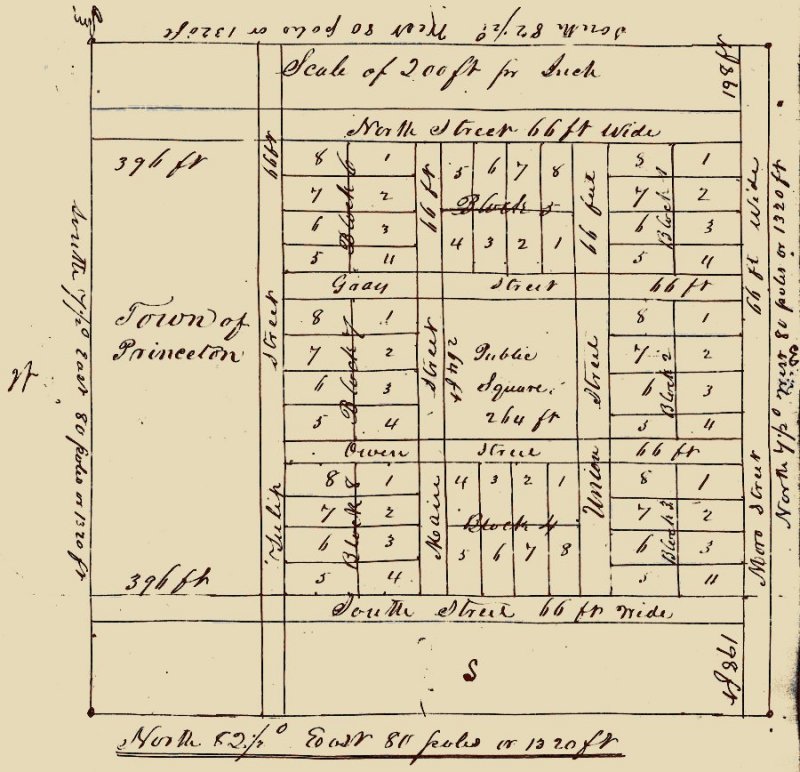 South 82 1/2° West 80 poles or 1320 ft
Scale of 200 ft pr Inch
198 ft
North Street 66 ft Wide
396 ft
66 ft
8 1
7 2
6 3
5 4
Block 6
66 ft
5 6 7 8
Block 5
4 3 2 1
66 feet
8 1
7 2
6 3
5 4
Block 1
66 ft Wide
Gray Street 66 ft
Town of
Princeton
Street
8 1
7 2
6 3
5 4
Block 7
Street
264 ft
Public
Square
264 ft
Street
8 1
7 2
6 3
5 4
Block 2
Owen Street 66 ft
Tulip
8 1
7 2
6 3
5 4
Block 8
Main
4 3 2 1
Block 4
5 6 7 8
Union
8 1
7 2
6 3
5 4
Block 3
Moro Street
396 ft
South Street 66 ft Wide
S
198 ft
South 7 1/2° East 80 poles or 1320 ft
North 7 1/2° West 80 poles or 1320 ft
North 82 1/2° East 80 poles or 1320 ft